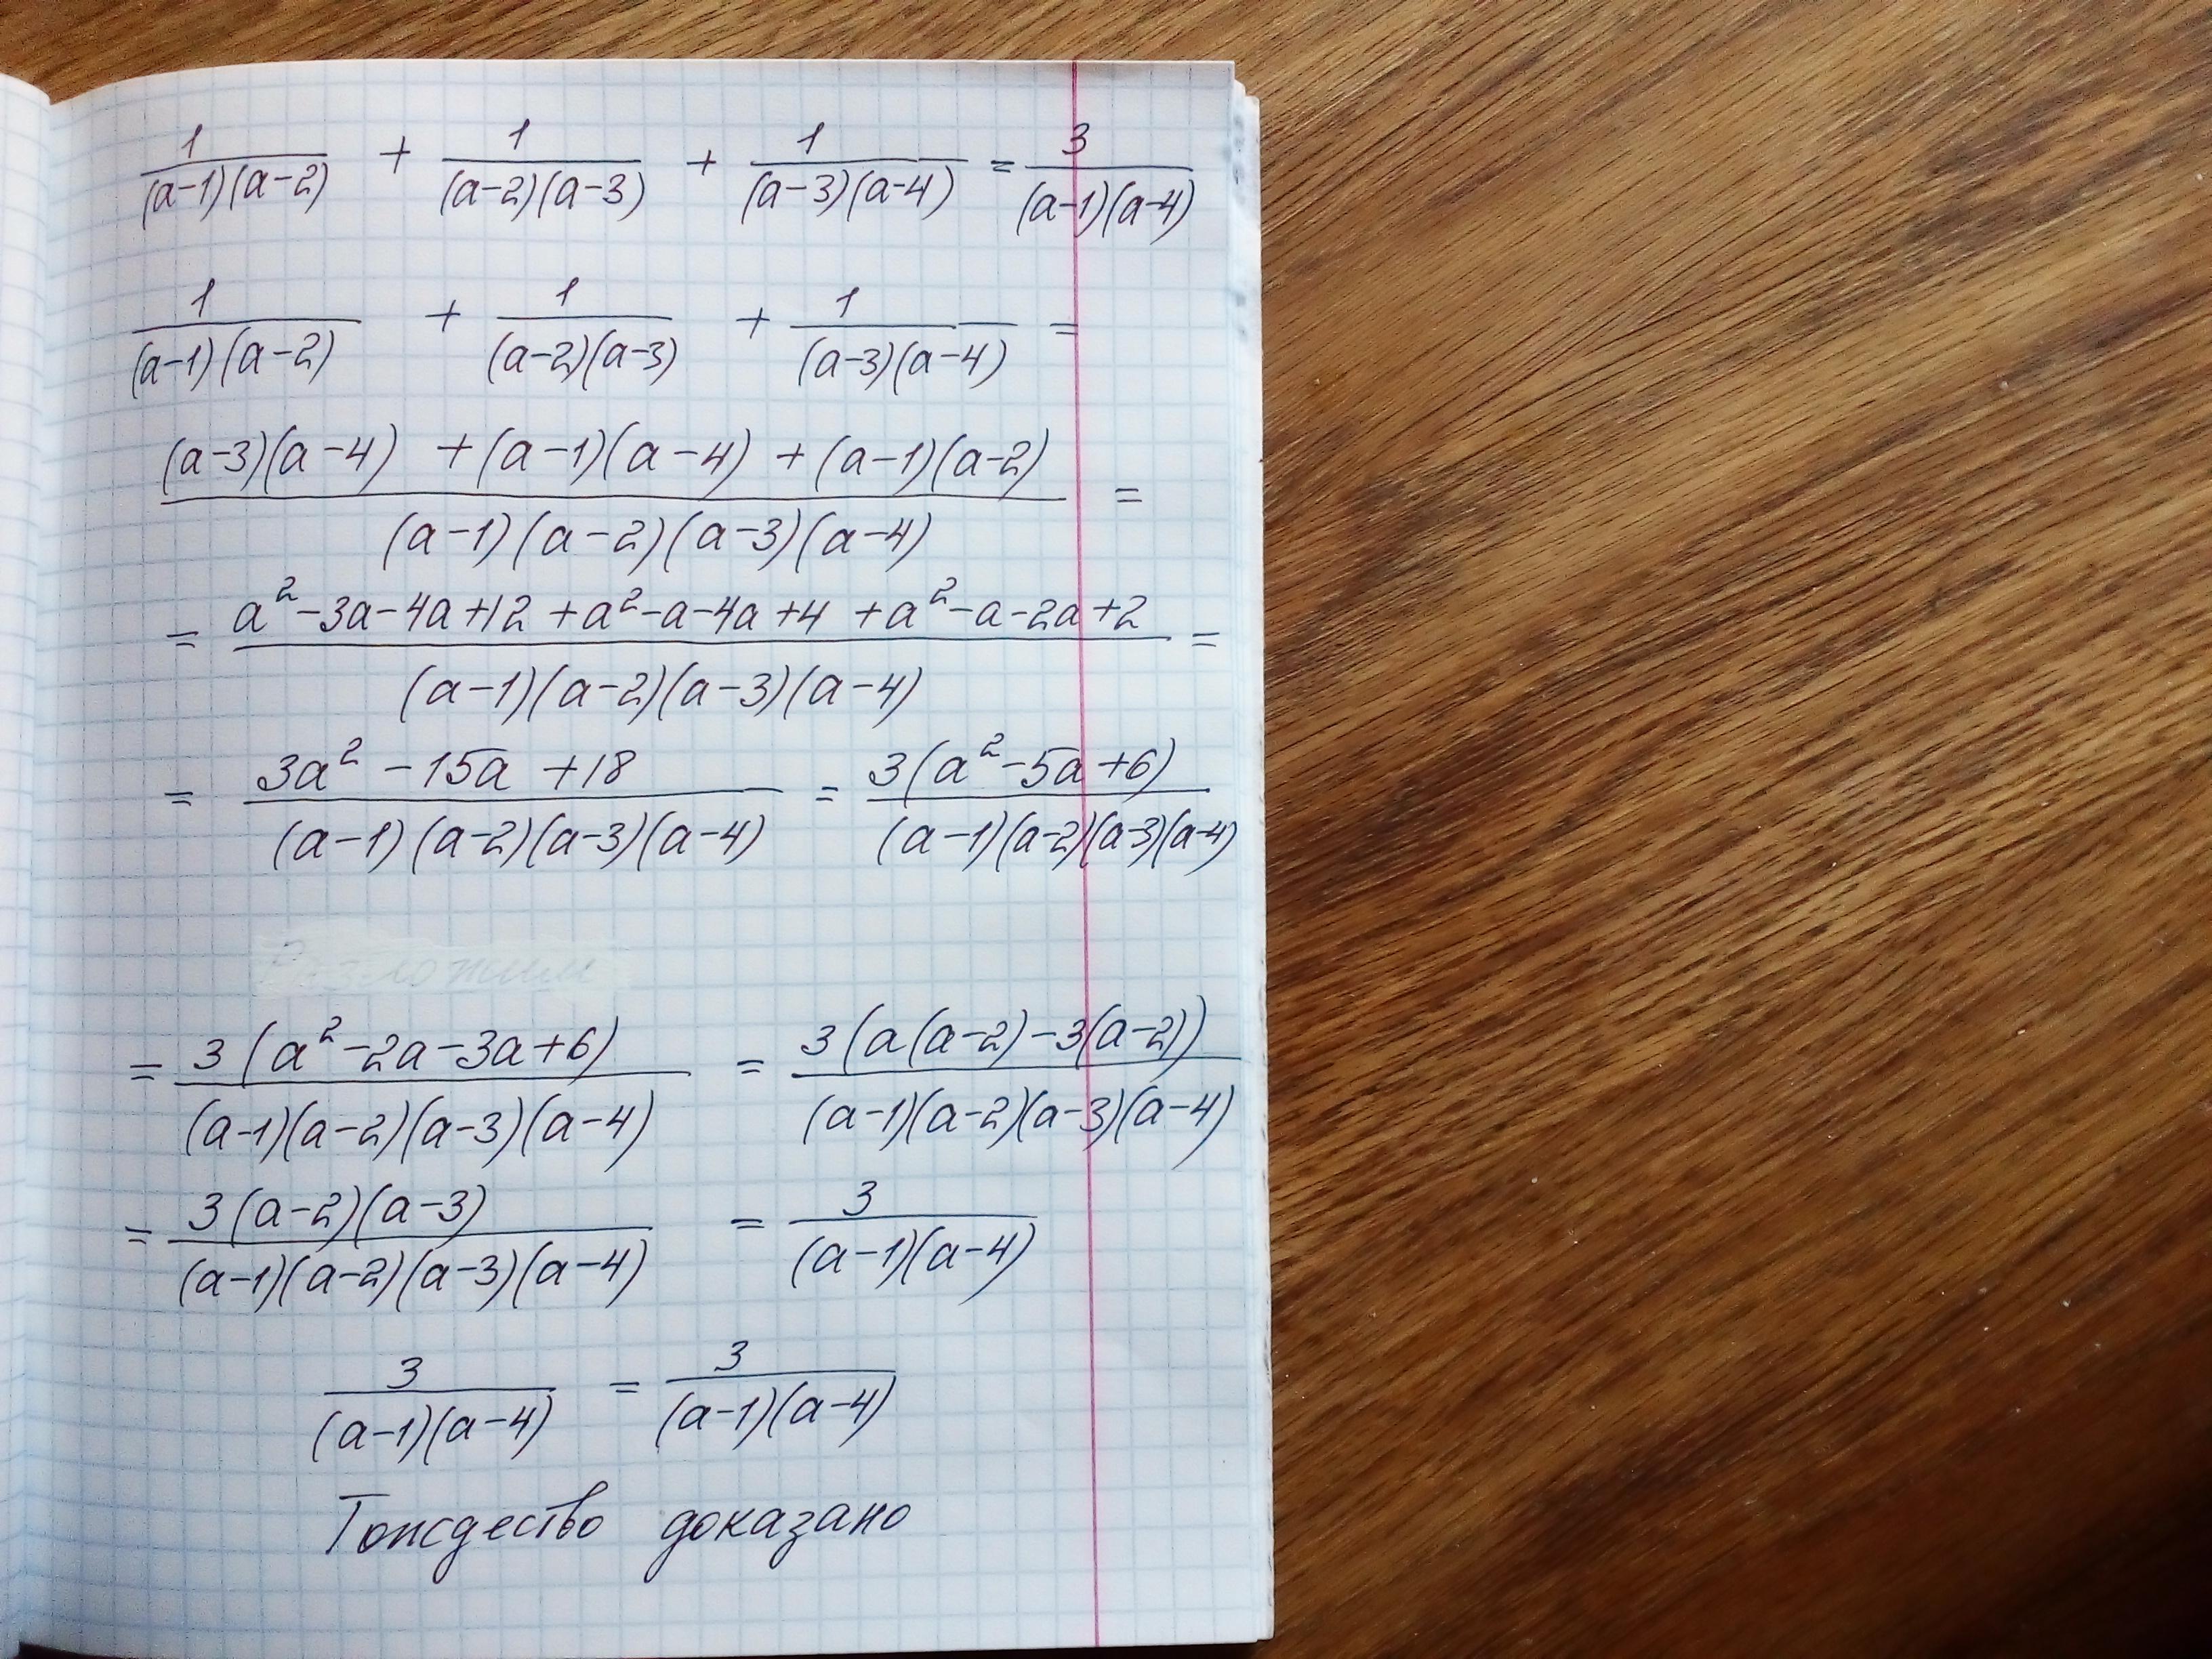 1/((a-1)(a-2)) + 1/((a-2)(a-3)) + 1/((a-3)(a-4)) = 3/((a-1)(a-4))
1/((a-1)(a-2)) + 1/((a-2)(a-3)) + 1/((a-3)(a-4)) =
((a-3)(a-4) + (a-1)(a-4) + (a-1)(a-2))/((a-1)(a-2)(a-3)(a-4)) =
= (a²-3a-4a+12+a²-a-4a+4+a²-a-2a+2)/((a-1)(a-2)(a-3)(a-4)) =
= (3a²-15a+18)/((a-1)(a-2)(a-3)(a-4)) = 3(a²-5a+6)/((a-1)(a-2)(a-3)(a-4))
Разложим
= 3(a²-2a-3a+6)/((a-1)(a-2)(a-3)(a-4)) = 3(a(a-2)-3(a-2))/((a-1)(a-2)(a-3)(a-4))
= 3(a-2)(a-3)/((a-1)(a-2)(a-3)(a-4)) = 3/((a-1)(a-4))
3/((a-1)(a-4)) = 3/((a-1)(a-4))
Тождество доказано